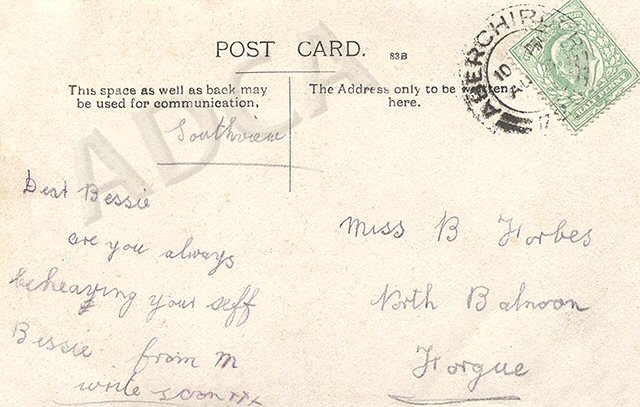 POST CARD.
83B
This space as well as back may
be used for communication,
The Address only to be written
here.
ABERCHIRDER
Southview
Dear Bessie
are you always
beheaving your self
Bessie from M
write soon xx
Miss B Forbes
North Balnoon
Forgue
HALF PENNY
ADCA